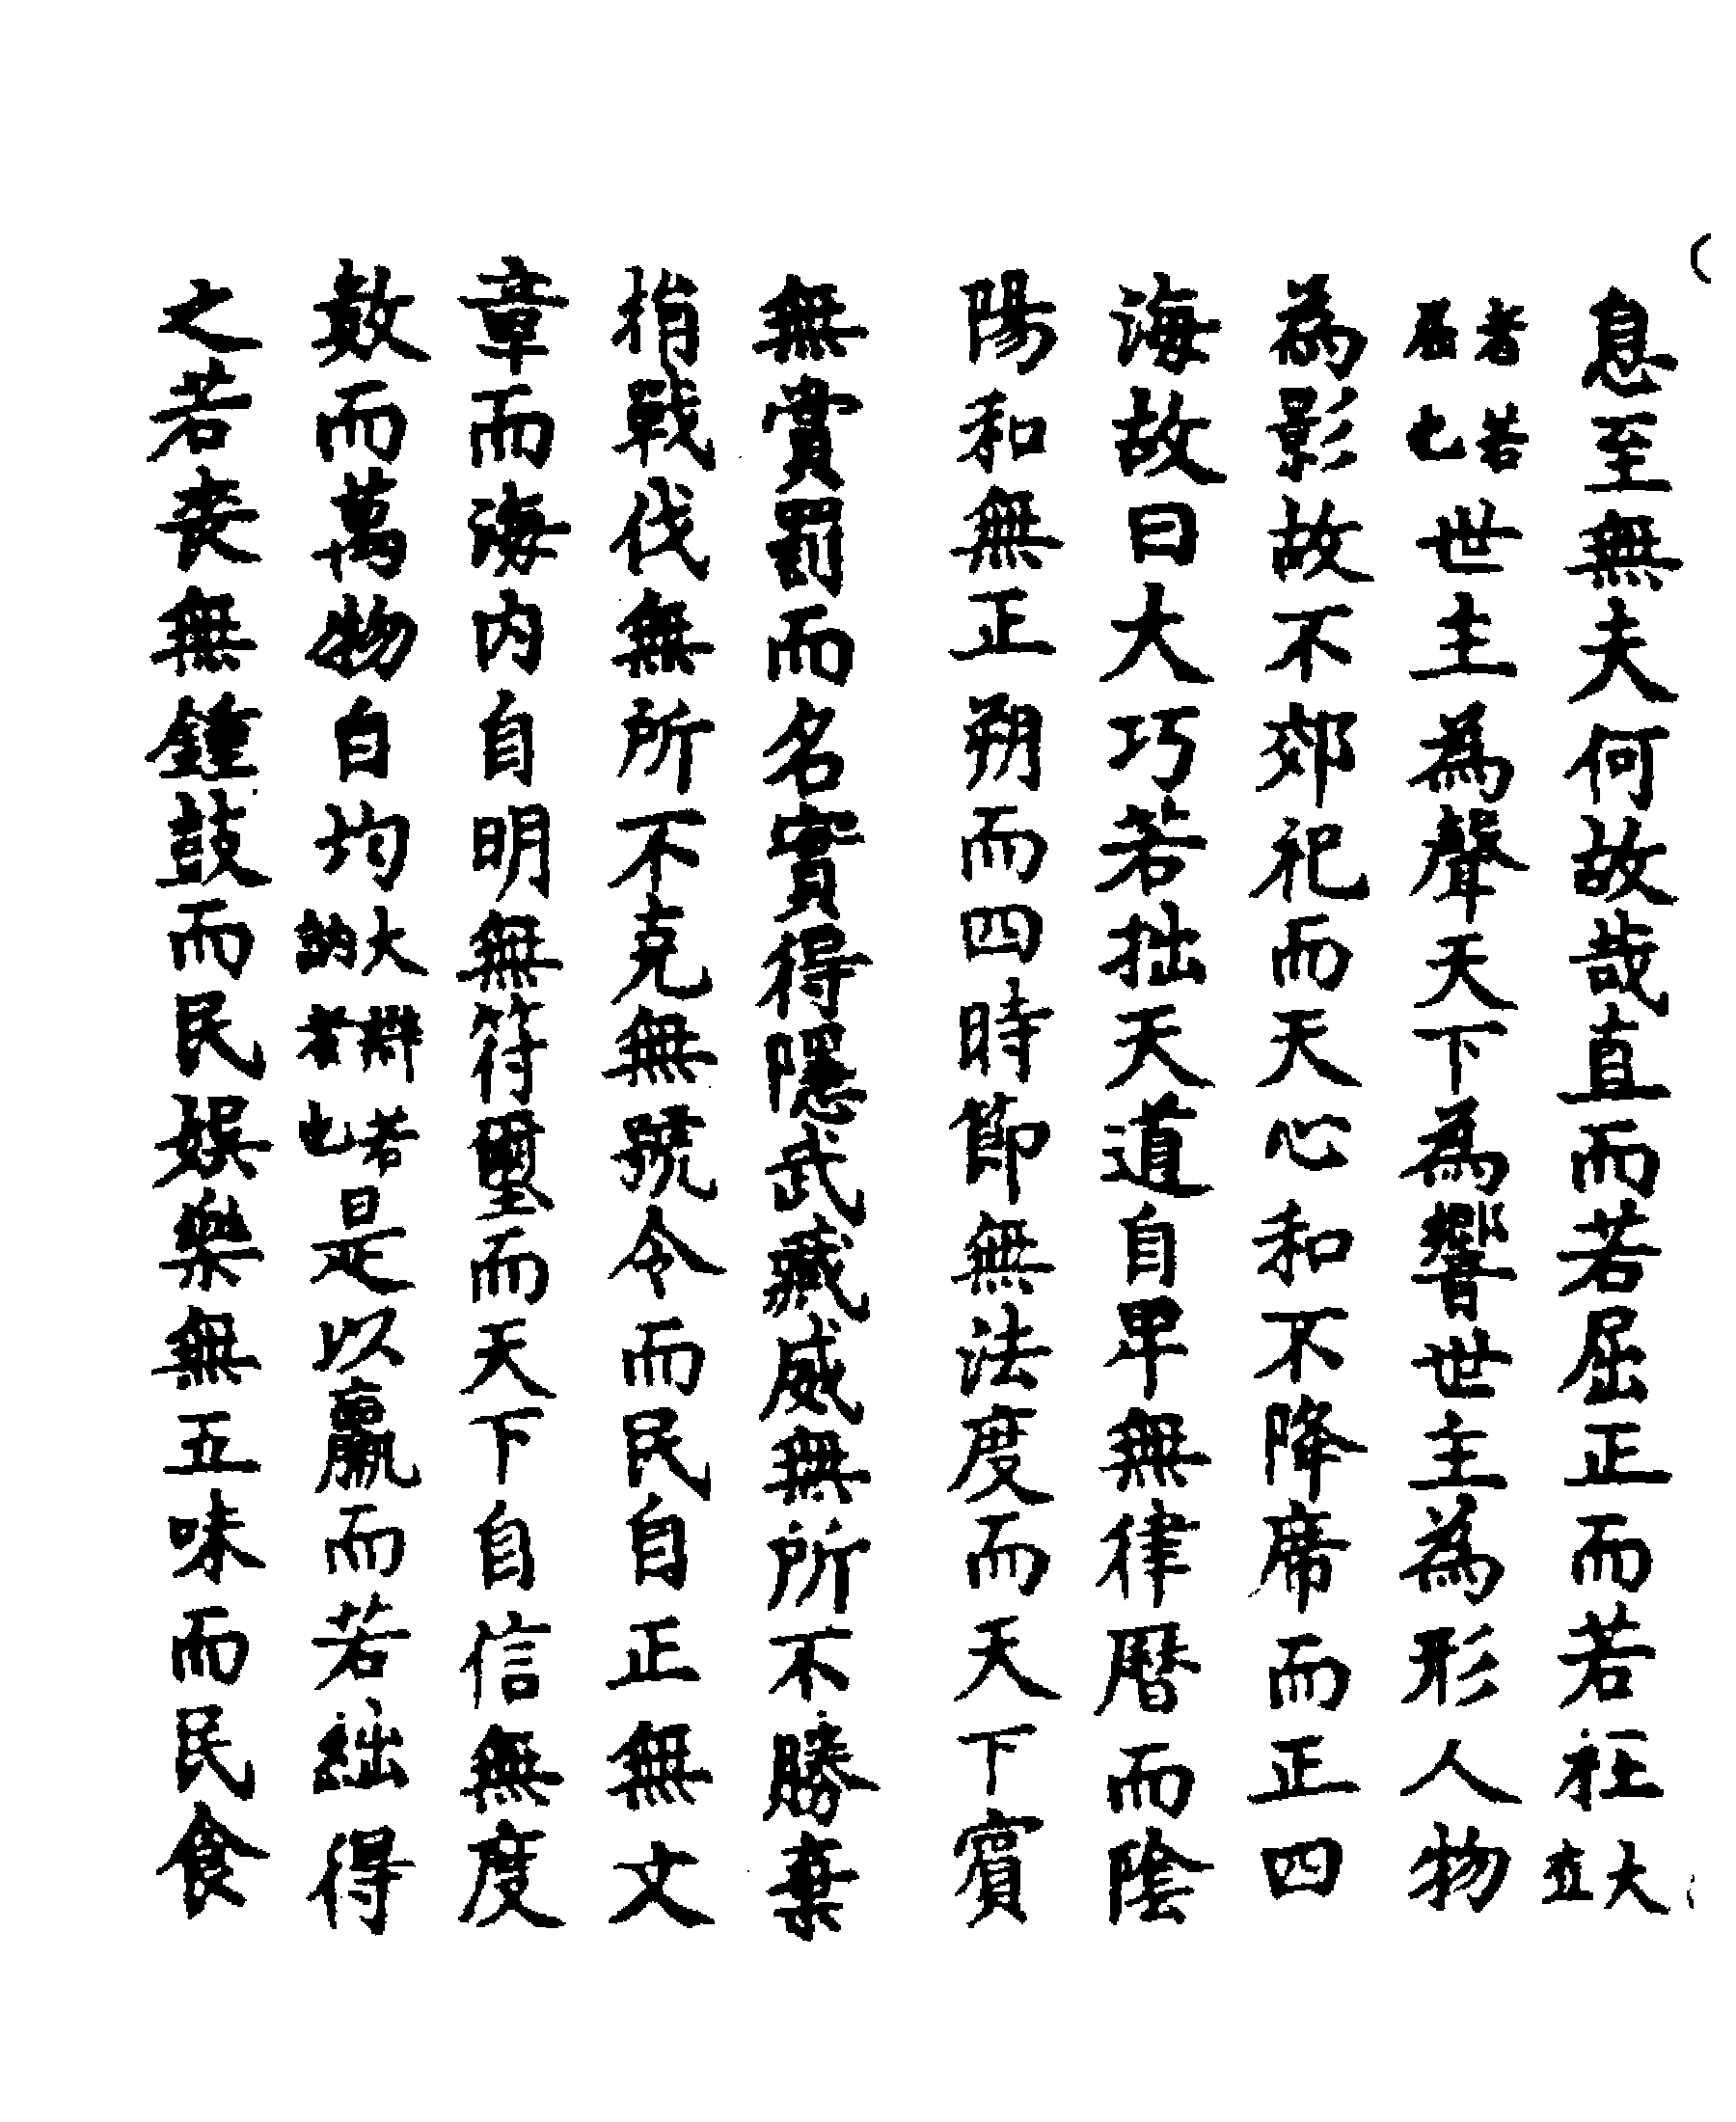 息至無夫何故哉直而若屈正而若枉大直
者若屈也世主為聲天下為響世主為形人物
為影故不郊祀而天心和不降席而正四
海故曰大巧若拙天道自卑無律曆而陰
陽和無正朔而四時節無法度而天下賓
無賞罰而名實得隱武藏威無所不勝棄
捐戰伐無所不克無號令而民自正無文
章而海內自明無符璽而天下自信無度
數而萬物自均大辯若訥者也是以贏而若絀得
之若喪無鐘鼓而民娛樂無五味而民食